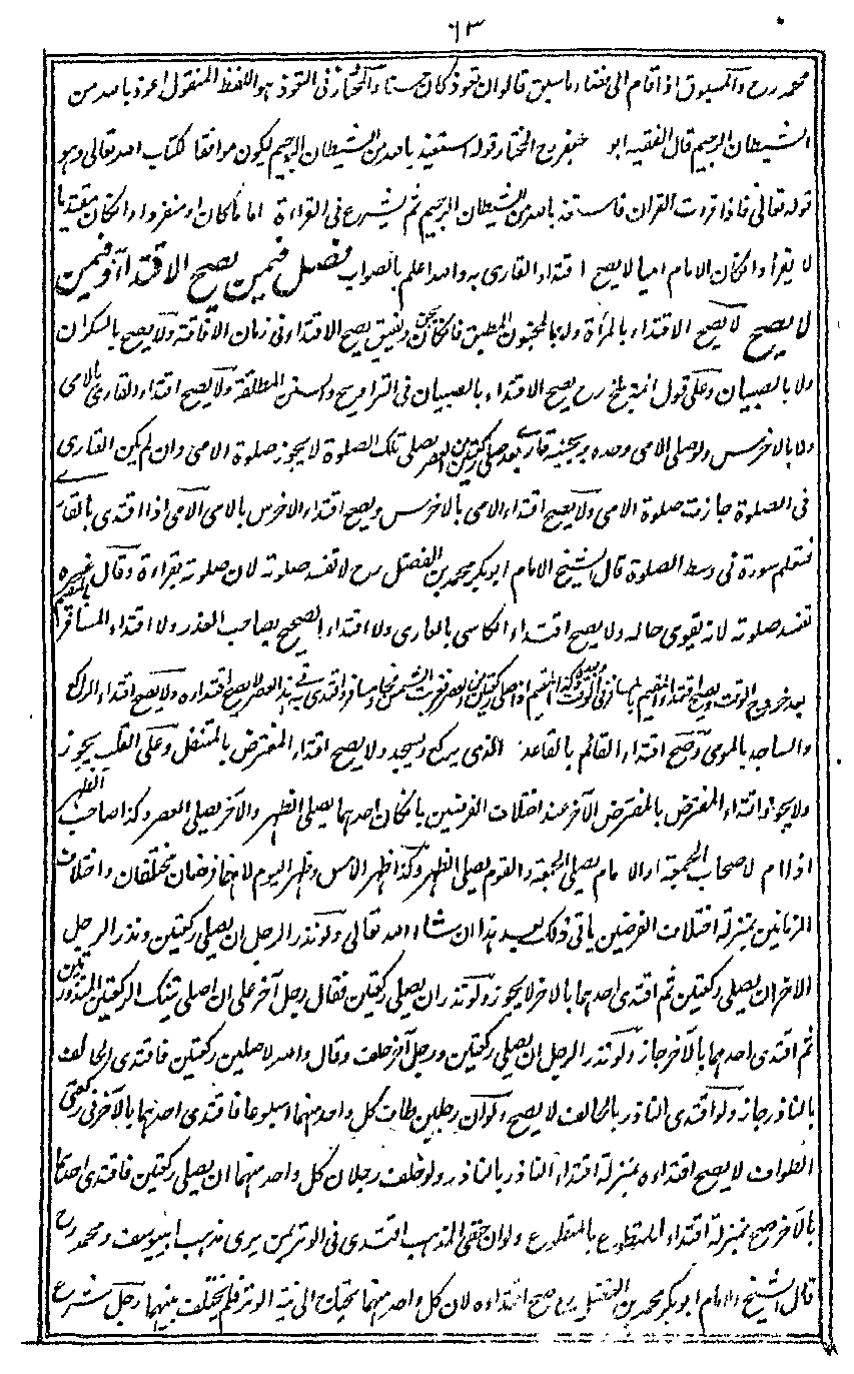 ٦٣
محمد رح والمسبوق اذا قام الى قضاء ما سبق قالوا ان تعوذ كان حسنا والمختار فى التعوذ هو اللفظ المنقول اعوذ بالله من
الشيطان الرجيم قال الفقيه ابو جعفر رح المختار قوله استعيذ بالله من الشيطان الرجيم ليكون موافقا لكتاب الله تعالى وهو
قوله تعالى فاذا قرءت القران فاستعذ بالله من الشيطان الرجيم ثم يشرع فى القراءة اماما كان او منفردا وان كان مقتديا
لا يقرأ وان كان الامام اميا لا يصح اقتداء القارى به والله اعلم بالصواب فصل فيمن يصح الاقتداء به وفيمن
لا يصح لا يصح الاقتداء بالمرأة ولا بالمجنون المطبق فان كان يجن ويفيق يصح الاقتداء فى زمان الافاقة ولا يصح بالسكران
ولا بالصبيان وعلى قول ائمة بلخ رح يصح الاقتداء بالصبيان فى التراويح والسنن المطلقة ولا يصح اقتداء القارى بالامى
ولا بالاخرس ولو صلى الامى وحده وبجنبه قارى يصلى تلك الصلوة لا يجوز صلوة الامى وان لم يكن القارى
فى الصلوة جازت صلوة الامى ولا يصح اقتداء الامى بالاخرس ويصح اقتداء الاخرس بالامى الامى اذا اقتدى بالقارى
فتعلم سورة فى وسط الصلوة قال الشيخ الامام ابو بكر محمد بن الفضل رح لا تفسد صلوته لان صلوته بقراءة وقال غيره
تفسد صلوته لانه يقوى حاله ولا يصح اقتداء الكاسى بالعارى ولا اقتداء الصحيح بصاحب العذر ولا اقتداء المسافر بالمقيم
بعد خروج الوقت ويصح اقتداء المقيم بالمسافر فى الوقت وبعده وكذا المقيم اذا صلى ركعتين من العصر فغربت الشمس فجاء مسافر واقتدى به فى هذا العصر لا يصح اقتداءه ولا يصح اقتداء الراكع
والساجد بالمومى ويصح اقتداء القائم بالقاعد الذى يركع ويسجد ولا يصح اقتداء المفترض بالمتنفل وعلى القلب يجوز
ولا يجوز اقتداء المفترض بالمفترض الآخر عند اختلاف الفرضين بان كان احدهما يصلى الظهر والآخر يصلى العصر وكذا صاحب الظهر
اذا ام لاصحاب الجمعة او الامام يصلى الجمعة والقوم يصلى الظهر وكذا ظهر الامس وظهر اليوم لانهما فرضان مختلفان واختلاف
الزمانين بمنزلة اختلاف الفرضين ياتى ذلك بعيد هذا ان شاء الله تعالى ولو نذر الرجل ان يصلى ركعتين ونذر الرجل
الاخر ان يصلى ركعتين ثم اقتدى احدهما بالاخر لا يجوز ولو نذر ان يصلى ركعتين فقال رجل آخر على ان اصلى تينك الركعتين المنذورتين
ثم اقتدى احدهما بالآخر جاز ولو نذر الرجل ان يصلى ركعتين ورجل آخر حلف وقال والله لاصلين ركعتين فاقتدى الحالف
بالناذر جاز ولو اقتدى الناذر بالحالف لا يصح ولو ان رجلين طاف كل واحد منهما اسبوعا فاقتدى احدهما بالآخر فى ركعتى
الطواف لا يصح اقتداءه بمنزلة اقتداء الناذر بالناذر ولو حلف رجلان كل واحد منهما ان يصلى ركعتين فاقتدى احدهما
بالآخر صح بمنزلة اقتداء المتطوع بالمتطوع ولو ان حنفى المذهب اقتدى فى الوتر بمن يرى مذهب ابى يوسف ومحمد رح
قال الشيخ الامام ابو بكر محمد بن الفضل رح صح اقتداءه لان كل واحد منهما يحتاج الى نية الوتر فلم يختلف نيتهما رجل شرع